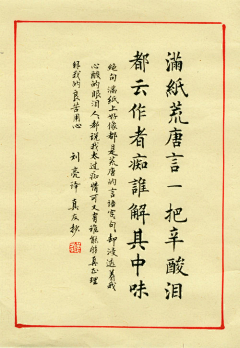 滿紙荒唐言一把辛酸泪
都云作者痴誰解其中味
絶句 滿紙上好像都是荒唐的言語字句却浸透着我
心酸的眼泪人都说我太过痴情可又有谁能够真正理
解我的良苦用心
刘亮